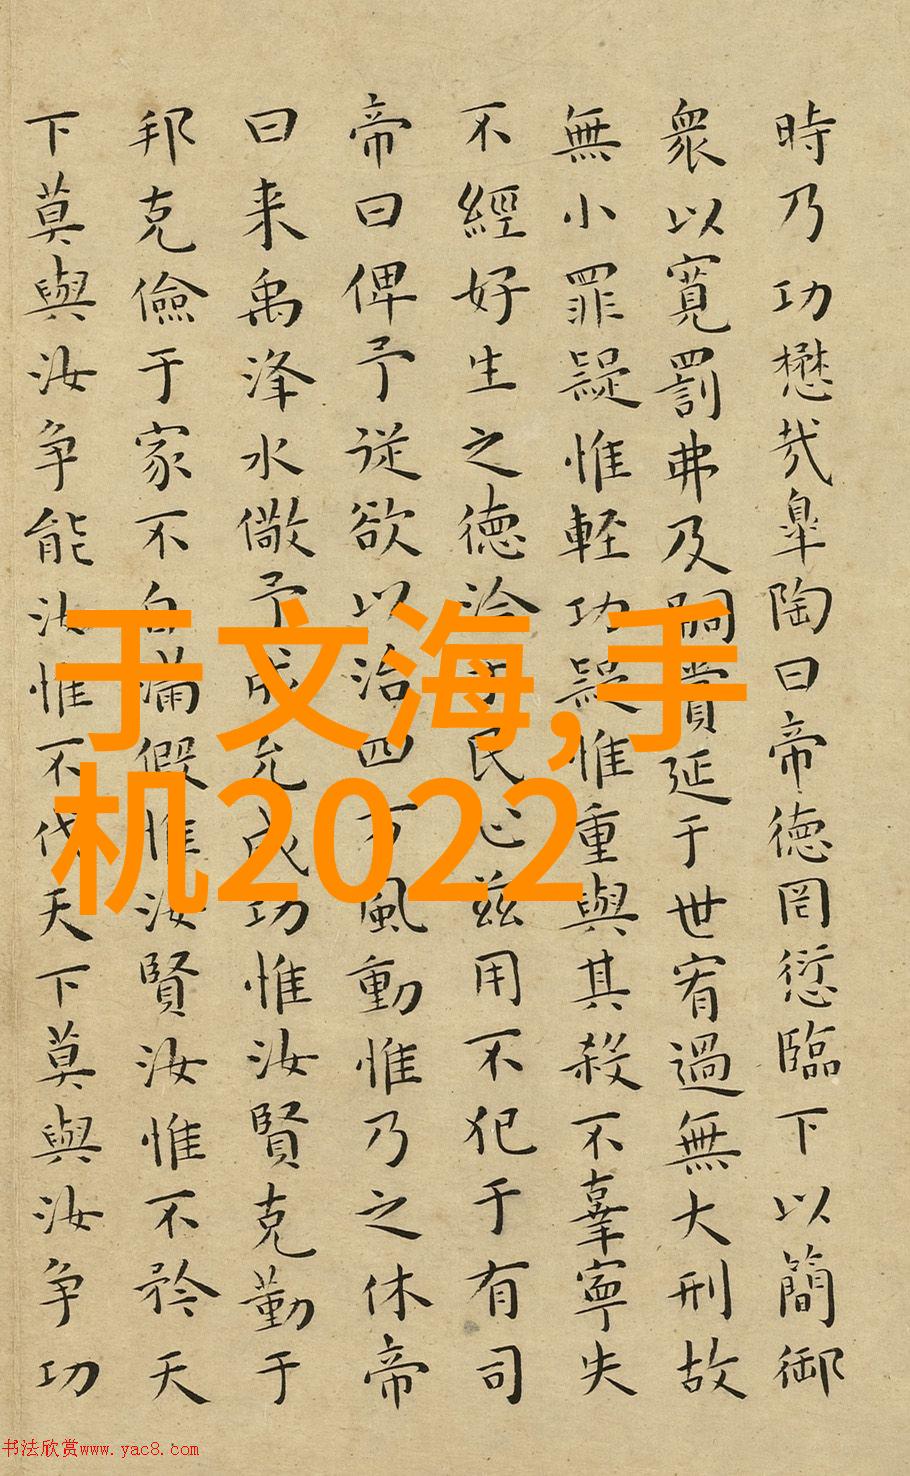 時乃功懋哉皐陶曰帝徳罔愆臨下以簡御
衆以寬罰弗及嗣賞延于世宥過無大刑故
無小罪疑惟軽功疑惟重與其殺不辜寧失
不經好生之徳洽于民心兹用不犯于有司
帝曰俾予従欲以治四方風動惟乃之休帝
曰来禹洚水儆予成允成功惟汝賢克勤于
邦克儉于家不自滿假惟汝賢汝惟不矜天
下莫與汝争能汝惟不伐天下莫與汝争功
于文海,手
机2022
书法欣赏www.yac8.com